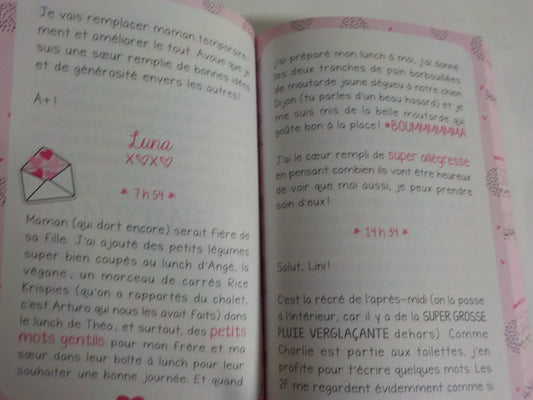 Je vais remplacer maman temporaire-
ment et améliorer le tout. Avoue que je
suis une sœur remplie de bonnes idées
et de générosité envers les autres!
A+!
Luna
X♡X♡
* 7 h 54 *
Maman (qui dort encore) serait fière de
sa fille. J'ai ajouté des petits légumes
super bien coupés au lunch d'Angé, la
végane, un morceau de carrés Rice
Krispies (qu'on a rapportés du chalet,
c'est Arturo qui nous les avait faits) dans
le lunch de Théo, et surtout, des petits
mots gentils pour mon frère et ma
sœur dans leur boîte à lunch pour leur
souhaiter une bonne journée. Et quand
j'ai préparé mon lunch à moi, j'ai donné
les deux tranches de pain barbouillées
de moutarde jaune dégueu à notre chien
Dijon (tu parles d'un beau hasard) et je
me suis mis de la belle moutarde qui
goûte bon à la place! *BOUMMMMMMA
J'ai le cœur rempli de super allégresse
en pensant combien ils vont être heureux
de voir que moi aussi, je peux prendre
soin d'eux!
* 14 h 34 *
Salut, Lini!
C'est la récré de l'après-midi (on la passe
à l'intérieur, car il y a de la SUPER GROSSE
PLUIE VERGLAÇANTE dehors). Comme
Charlie est partie aux toilettes, j'en
profite pour t'écrire quelques mots. Les
2F me regardent évidemment comme si